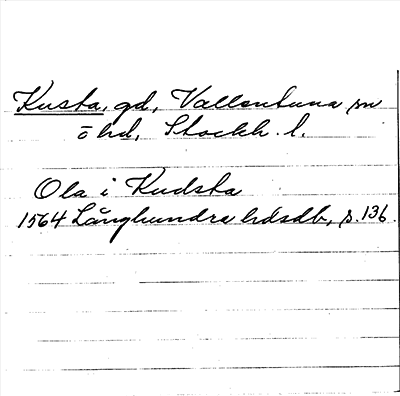 Kusta, gd, Vallentuna sn
ō hd, Stockh. l.
Ola i Kudsta
1564 Långhundra hdsdb, s. 136.